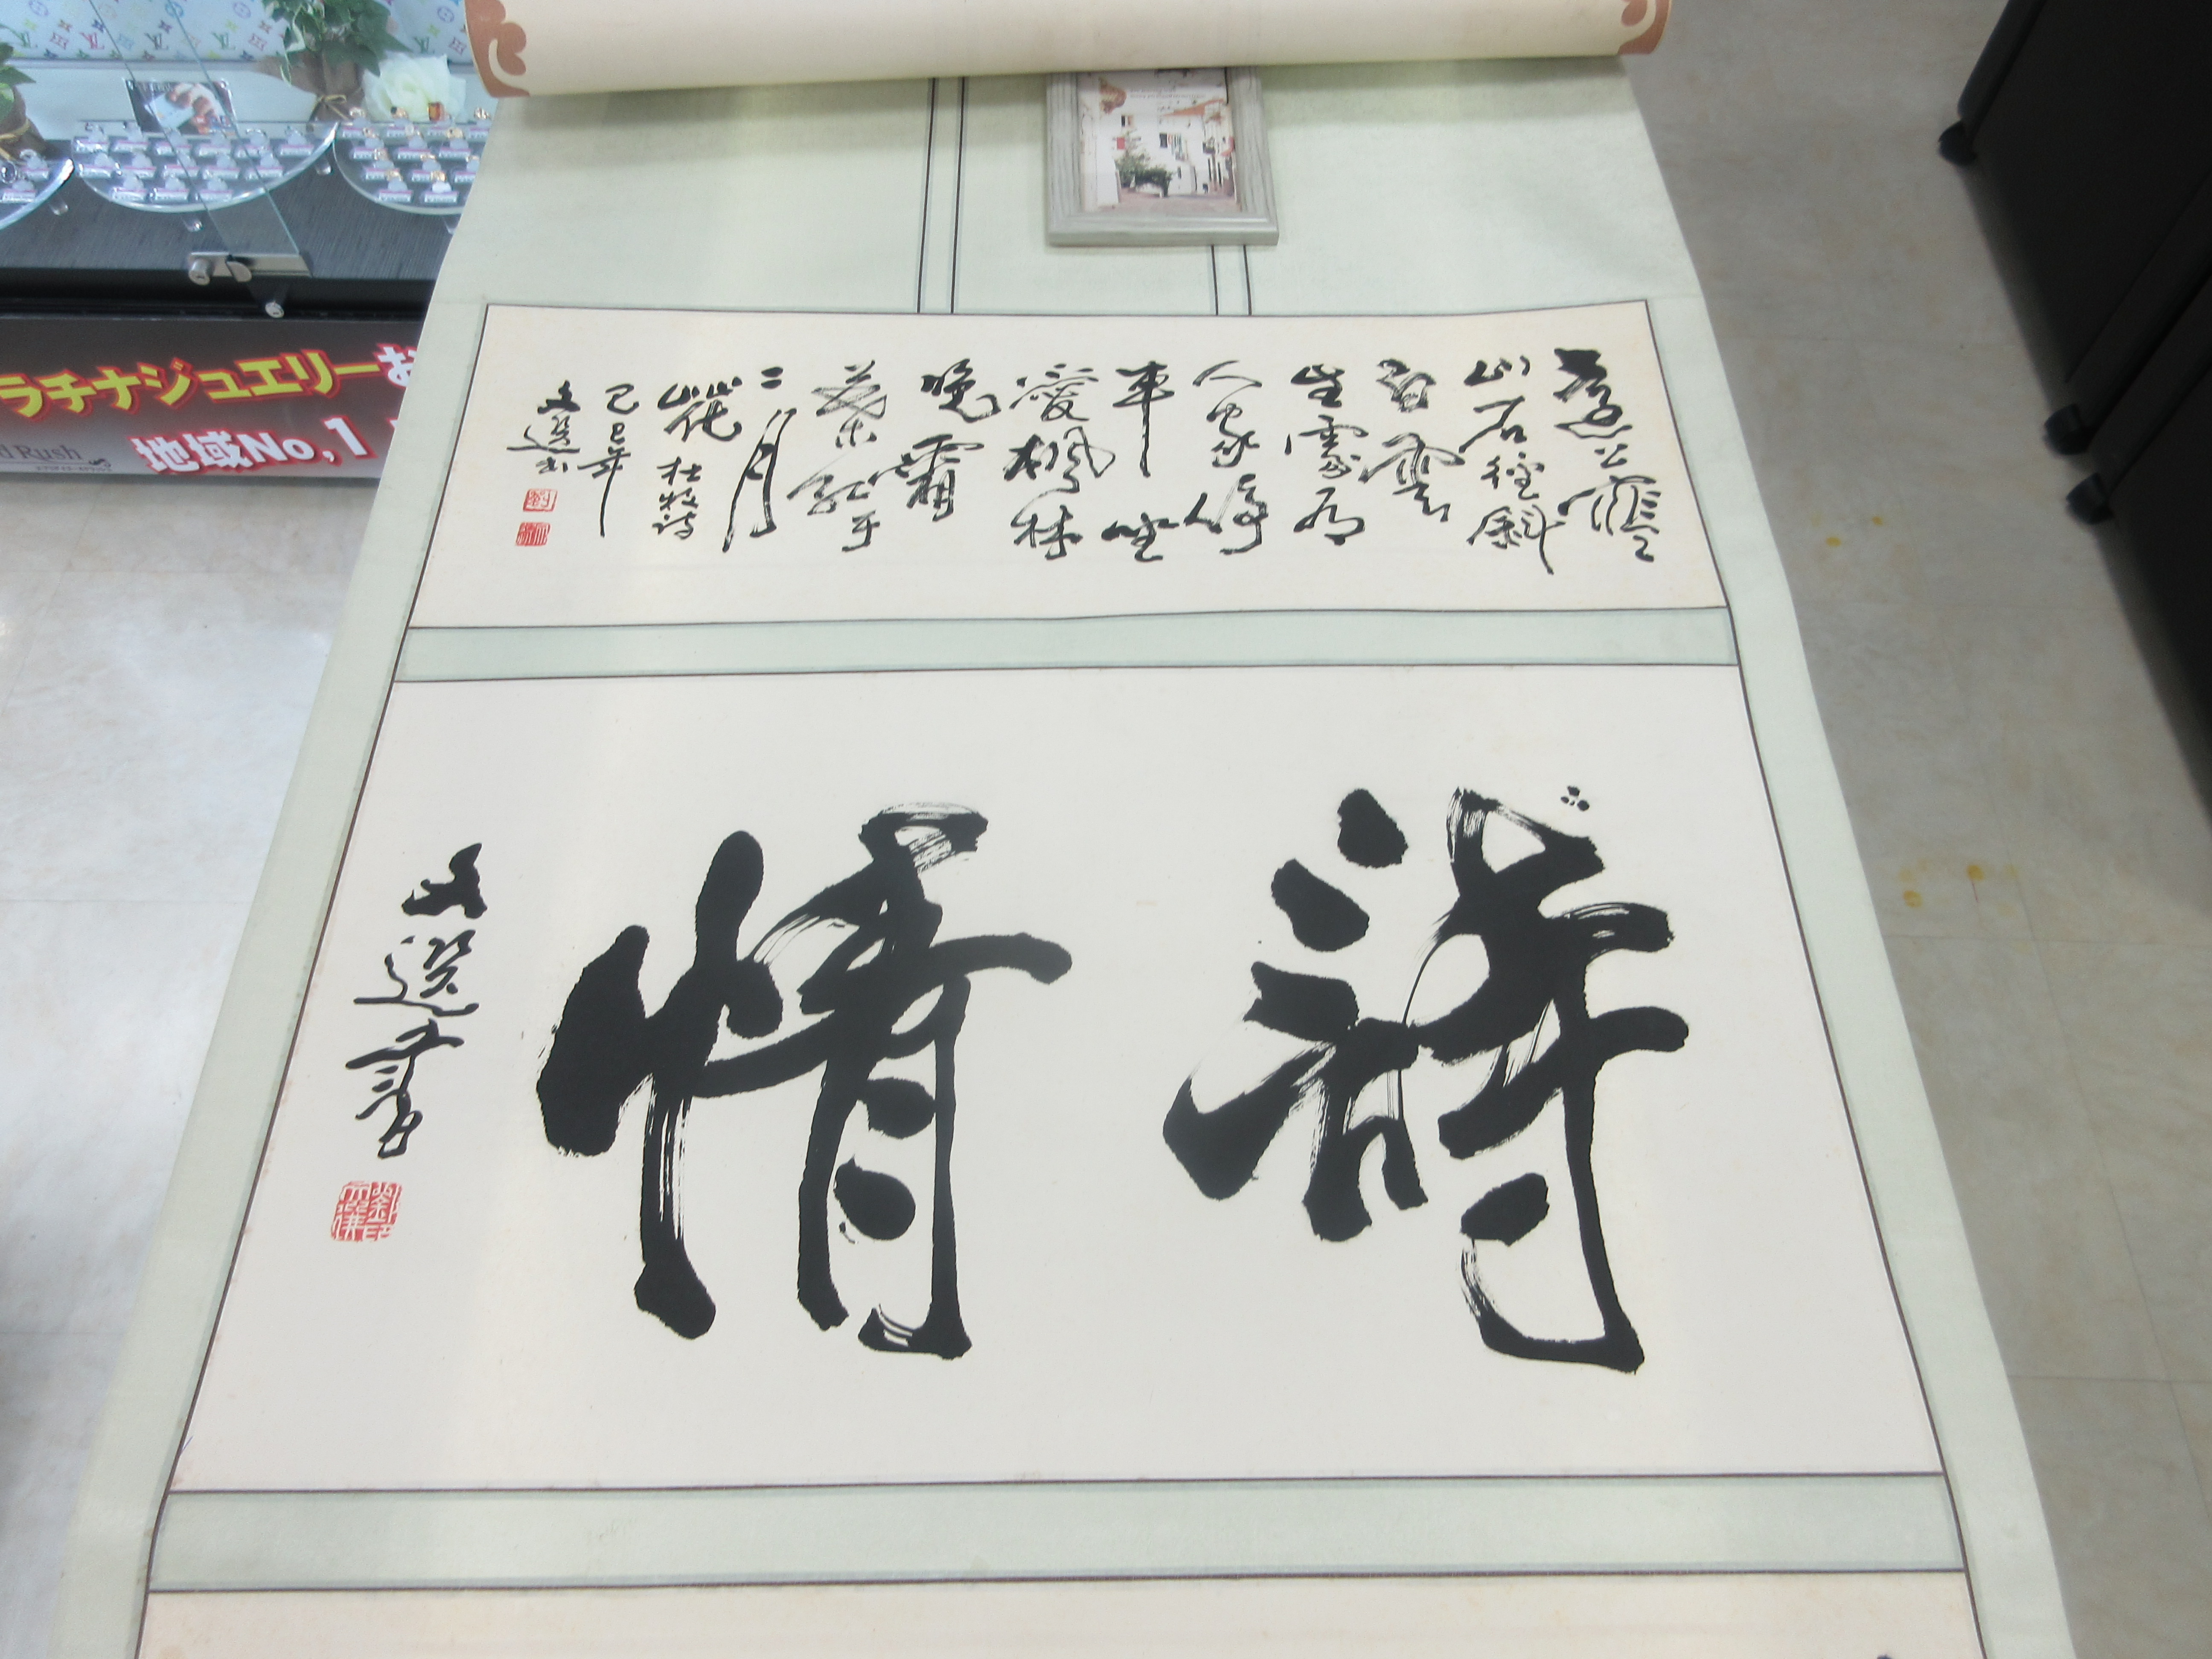 遠上寒
山石徑斜
白雲
生處有
人家停
車坐
愛楓林
晚霜
葉紅于
二月
花 杜牧詩
己巳年
文選书
詩情
文選書
ラチナジュエリーお
地域No,1
d Rush